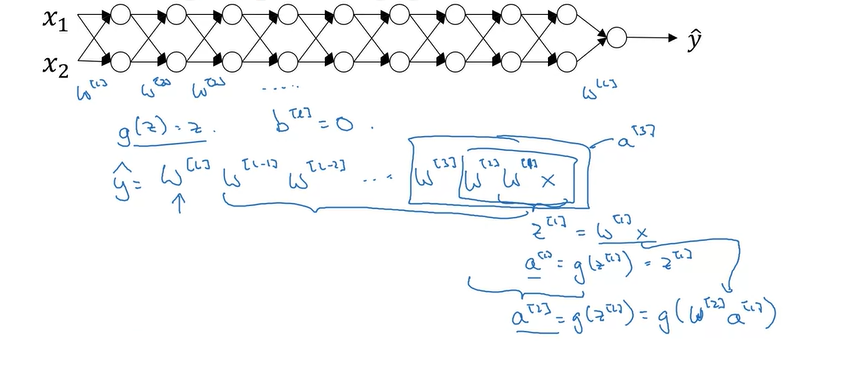 x₁
x₂ ŷ
w^[1] w^[2] w^[3] ..... w^[L]
g(z) = z. b^[l] = 0.
a^[3]
ŷ = w^[L] w^[L-1] w^[L-2] ... w^[3] w^[2] w^[1] x
z^[1] = w^[1] x
a^[1] = g(z^[1]) = z^[1]
a^[2] = g(z^[2]) = g(w^[2] a^[1])